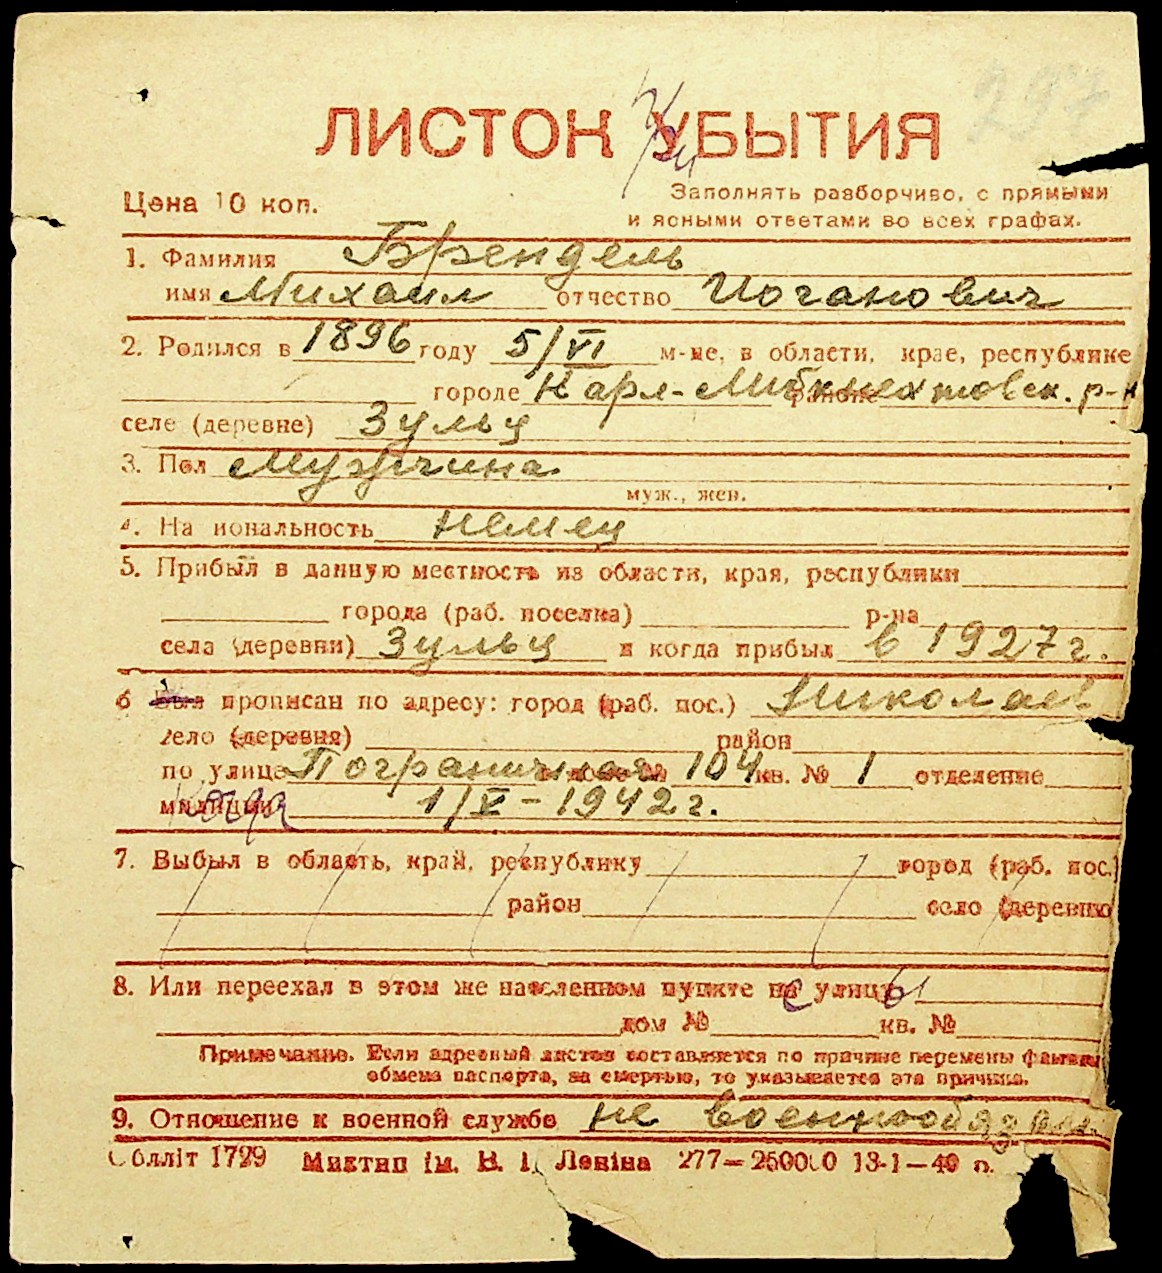 ЛИСТОК УБЫТИЯ
Цена 10 коп.
Заполнять разборчиво, с прямыми
и ясными ответами во всех графах.
1. Фамилия Брендель
имя Михаил отчество Иоганович
2. Родился в 1896 году 5/VI м-це, в области, крае, республике
городе Карл-Либкнехтовск. р-н районе
селе (деревне) Зульц
3. Пол Мужчина
муж., жен.
4. Национальность немец
5. Прибыл в данную местность из области, края, республики
города (раб. поселка) р-на
села (деревни) Зульц и когда прибыл в 1927 г.
6 Был прописан по адресу: город (раб. пос.) Николаев
село (деревня) район
по улице Пограничная 104 кв. № 1 отделение
милиции Когда 1/V - 1942 г.
7. Выбыл в область, край, республику город (раб. пос.)
район село (деревню
8. Или переехал в этом же населенном пункте на улицу
дом № кв. №
Примечание. Если адресный листок составляется по причине перемены фамилии
обмена паспорта, за смертью, то указывается эта причина.
9. Отношение к военной службе не военнообязан.
Облліт 1729 Миктип ім. В. І. Леніна 277—250000 13-1—40 р.